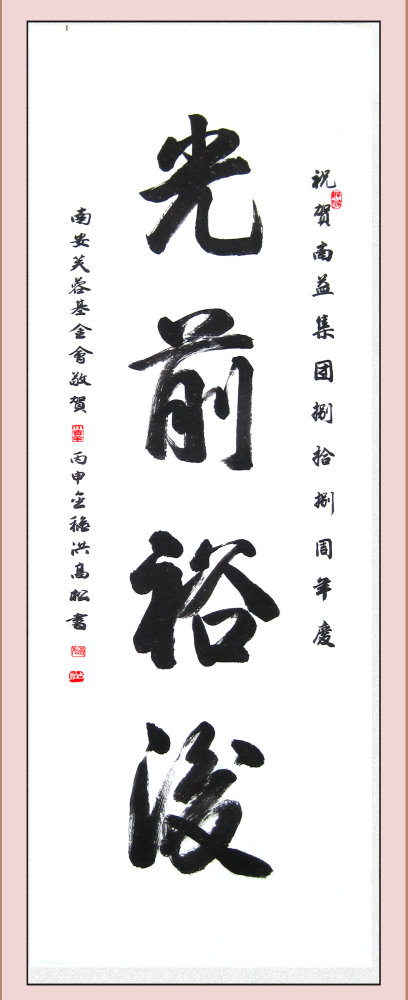 祝賀南益集团捌拾捌周年慶
光前裕後
南安芙蓉基金會敬賀 丙申金穐洪高松書